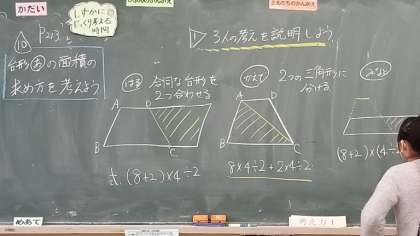 かだい
しずかに
じっくり考える
時間
⑩ P213
台形あの面積の
求め方を考えよう
1 3人の考えを説明しよう。
はる 合同な台形を
2つ合わせる
A D
B C
式 (8+2)×4÷2
かえで 2つの三角形に
分ける
A D
B C
8×4÷2+2×4÷2
(8+2)×(4÷
めあて